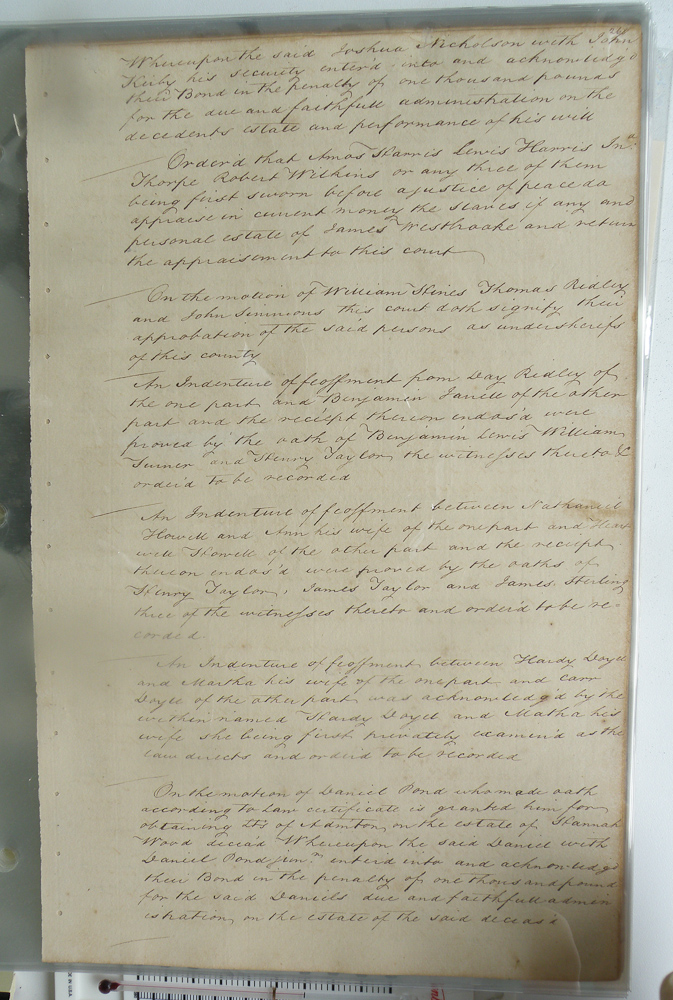 Whereupon the said Joshua Nicholson with John
Kirby his security enter'd into and acknowledg'd
their Bond in the penalty of one thousand pounds
for the due and faithfull administration on the
decedents estate and performance of his will
Order'd that Amos Harris Lewis Harris Jnr
Thorpe Robert Wilkins or any three of them
being first sworn before a justice of peace do
appraise in current money the slaves if any and
personal estate of James Westbrooke and return
the appraisement to this court
On the motion of William Hines Thomas Ridley
and John Simmons this court doth signify their
approbation of the said persons as undersherifs
of this county
An Indenture of feoffment from Day Ridley of
the one part and Benjamin of the other
part and the reciept thereon endos'd were
proved by the oath of Benjamin Lewis William
Turner and Henry Taylor the witnesses thereto &
order'd to be recorded
An Indenture of feoffment between Nathaniel
Howell and Ann his wife of the one part and
Howell of the other part and the reciept
thereon endos'd were proved by the oaths of
Henry Taylor, James Taylor and James Sterling
three of the witnesses thereto and order'd to be re-
corded
An Indenture of feoffment between Hardy Doyel
and Martha his wife of the one part and Carr
Doyel of the other part was acknowledg'd by the
within named Hardy Doyel and Matha his
wife she being first privately examin'd as the
law directs and order'd to be recorded
On the motion of Daniel Pond who made oath
according to Law certificate is granted him for
obtaining Ltrs of Admton on the estate of Hannah
Wood deceas'd Whereupon the said Daniel with
Daniel Pond junr enter'd into and acknowledg'd
their Bond in the penalty of one thousand pound
for the said Daniels due and faithfull admin
istration on the estate of the said deceas'd